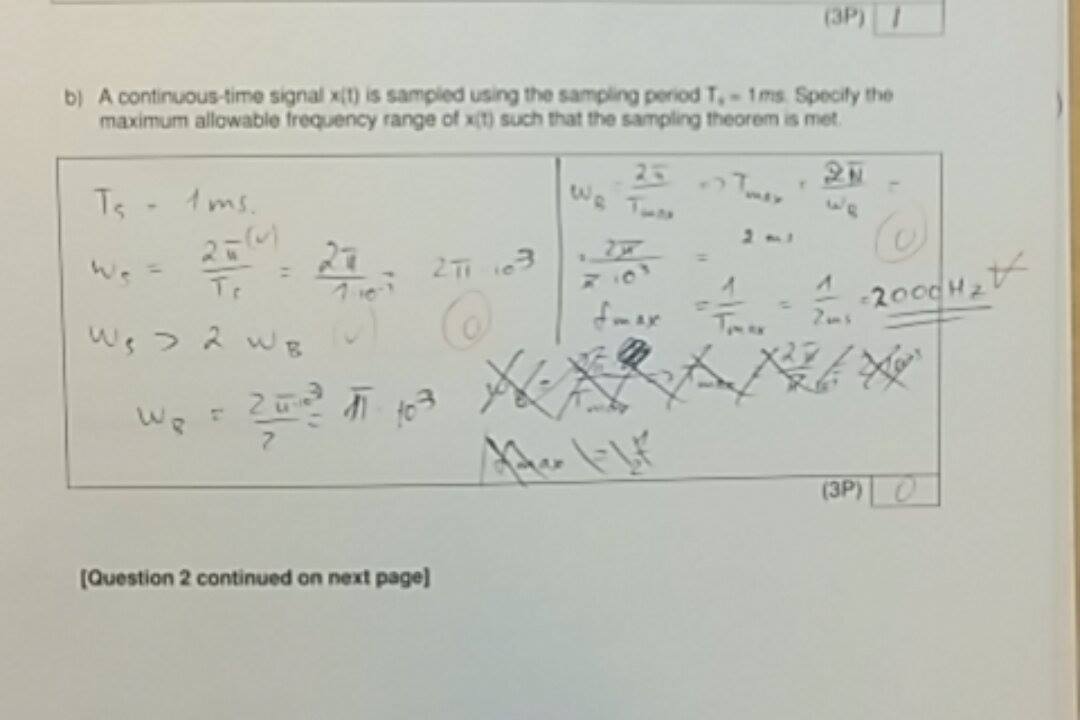 (3P) 1
b) A continuous-time signal x(t) is sampled using the sampling period Tₛ = 1ms. Specify the
maximum allowable frequency range of x(t) such that the sampling theorem is met.
Tₛ = 1 ms.
wₛ = 2π/Tₛ (v) = 2π/1·10⁻³ = 2π·10³
0
wₛ > 2 w_B (v)
w_B = 2π·10³/2 = π·10³
w_B = 2π/Tmax => Tmax = 2π/w_B =
0
= 2π/π·10³ = 2 ms
fmax = 1/Tmax = 1/2ms = 2000 Hz
(3P) 0
[Question 2 continued on next page]